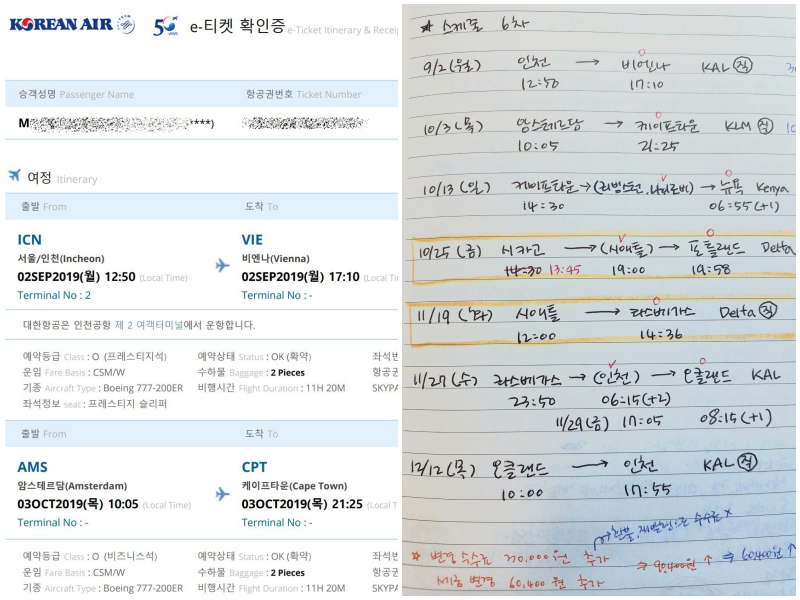 KOREAN AIR 50 e-티켓 확인증 e-Ticket Itinerary & Recei
승객성명 Passenger Name 항공권번호 Ticket Number
M ****)
여정 Itinerary
출발 From 도착 To
ICN VIE
서울/인천(Incheon) 비엔나(Vienna)
02SEP2019(월) 12:50 (Local Time) 02SEP2019(월) 17:10 (Local Ti
Terminal No : 2 Terminal No : -
대한항공은 인천공항 제 2 여객터미널에서 운항합니다.
예약등급 Class : O (프레스티지석) 예약상태 Status : OK (확약) 좌석번
운임 Fare Basis : CSM/W 수하물 Baggage : 2 Pieces 항공권
기종 Aircraft Type : Boeing 777-200ER 비행시간 Flight Duration : 11H 20M SKYPA
좌석정보 seat : 프레스티지 슬리퍼
출발 From 도착 To
AMS CPT
암스테르담(Amsterdam) 케이프타운(Cape Town)
03OCT2019(목) 10:05 (Local Time) 03OCT2019(목) 21:25 (Local T
Terminal No : - Terminal No : -
예약등급 Class : O (비즈니스석) 예약상태 Status : OK (확약) 좌석번
운임 Fare Basis : CSM/W 수하물 Baggage : 2 Pieces 항공권
기종 Aircraft Type : Boeing 777-200ER 비행시간 Flight Duration : 11H 20M SKYPA
★ 스케줄 6차
9/2 (월) 인천 → 비엔나 KAL 직
12:50 17:10
10/3 (목) 암스테르담 → 케이프타운 KLM 직
10:05 21:25
10/13 (일) 케이프타운 → (리빙스턴, 나이로비) → 뉴욕 Kenya
14:30 06:55 (+1)
10/25 (금) 시카고 → (시애틀) → 포틀랜드 Delta
14:30 13:45 19:00 19:58
11/19 (화) 시애틀 → 라스베가스 Delta 직
12:00 14:36
11/27 (수) 라스베가스 → (인천) → 오클랜드 KAL
23:50 06:15(+2)
11/29(금) 17:05 08:15(+1)
12/12 (목) 오클랜드 → 인천 KAL 직
10:00 17:55
→ 환불, 재발행으로 수수료 X
★ 변경 수수료 30,000원 추가 ⇒ 90,400원 ↑ ⇒ 60,400원 ↑
세금 변경 60,400원 추가